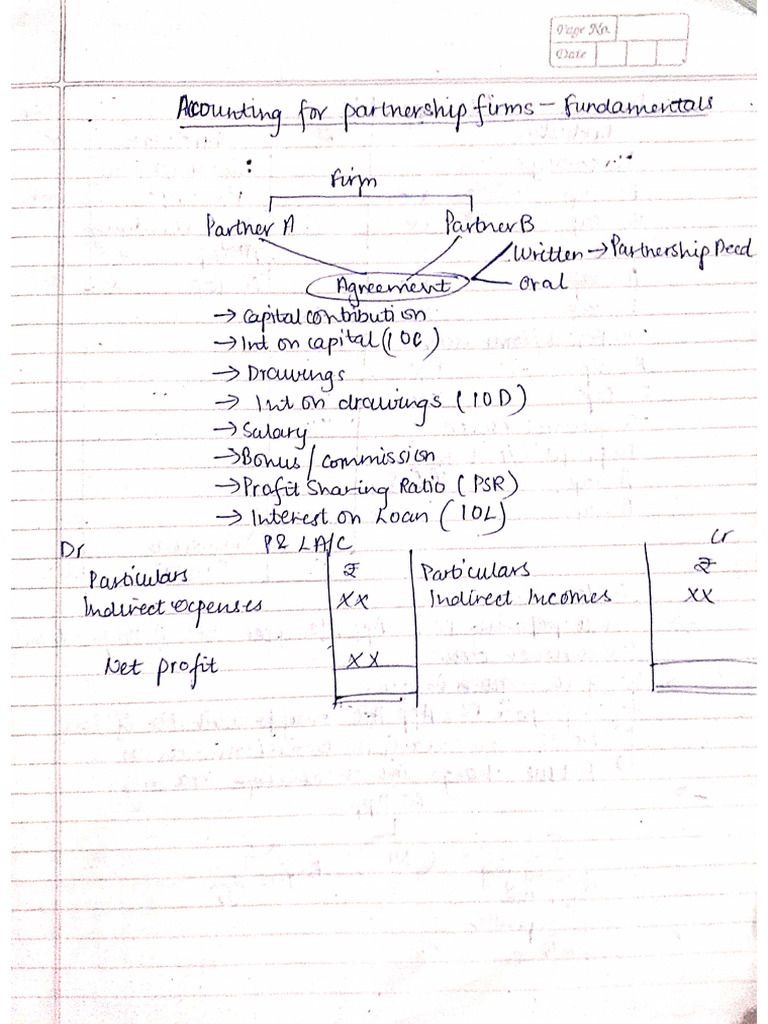 Page No.
Date
Accounting for partnership firms - Fundamentals
Firm
Partner A Partner B
Written → Partnership Deed
Agreement Oral
→ Capital contribution
→ Int on capital (IOC)
→ Drawings
→ Int on drawings (IOD)
→ Salary
→ Bonus / commission
→ Profit Sharing Ratio (PSR)
→ Interest on Loan (IOL)
Dr P & L A/C Cr
Particulars ₹ Particulars ₹
Indirect expenses XX Indirect Incomes XX
Net profit XX